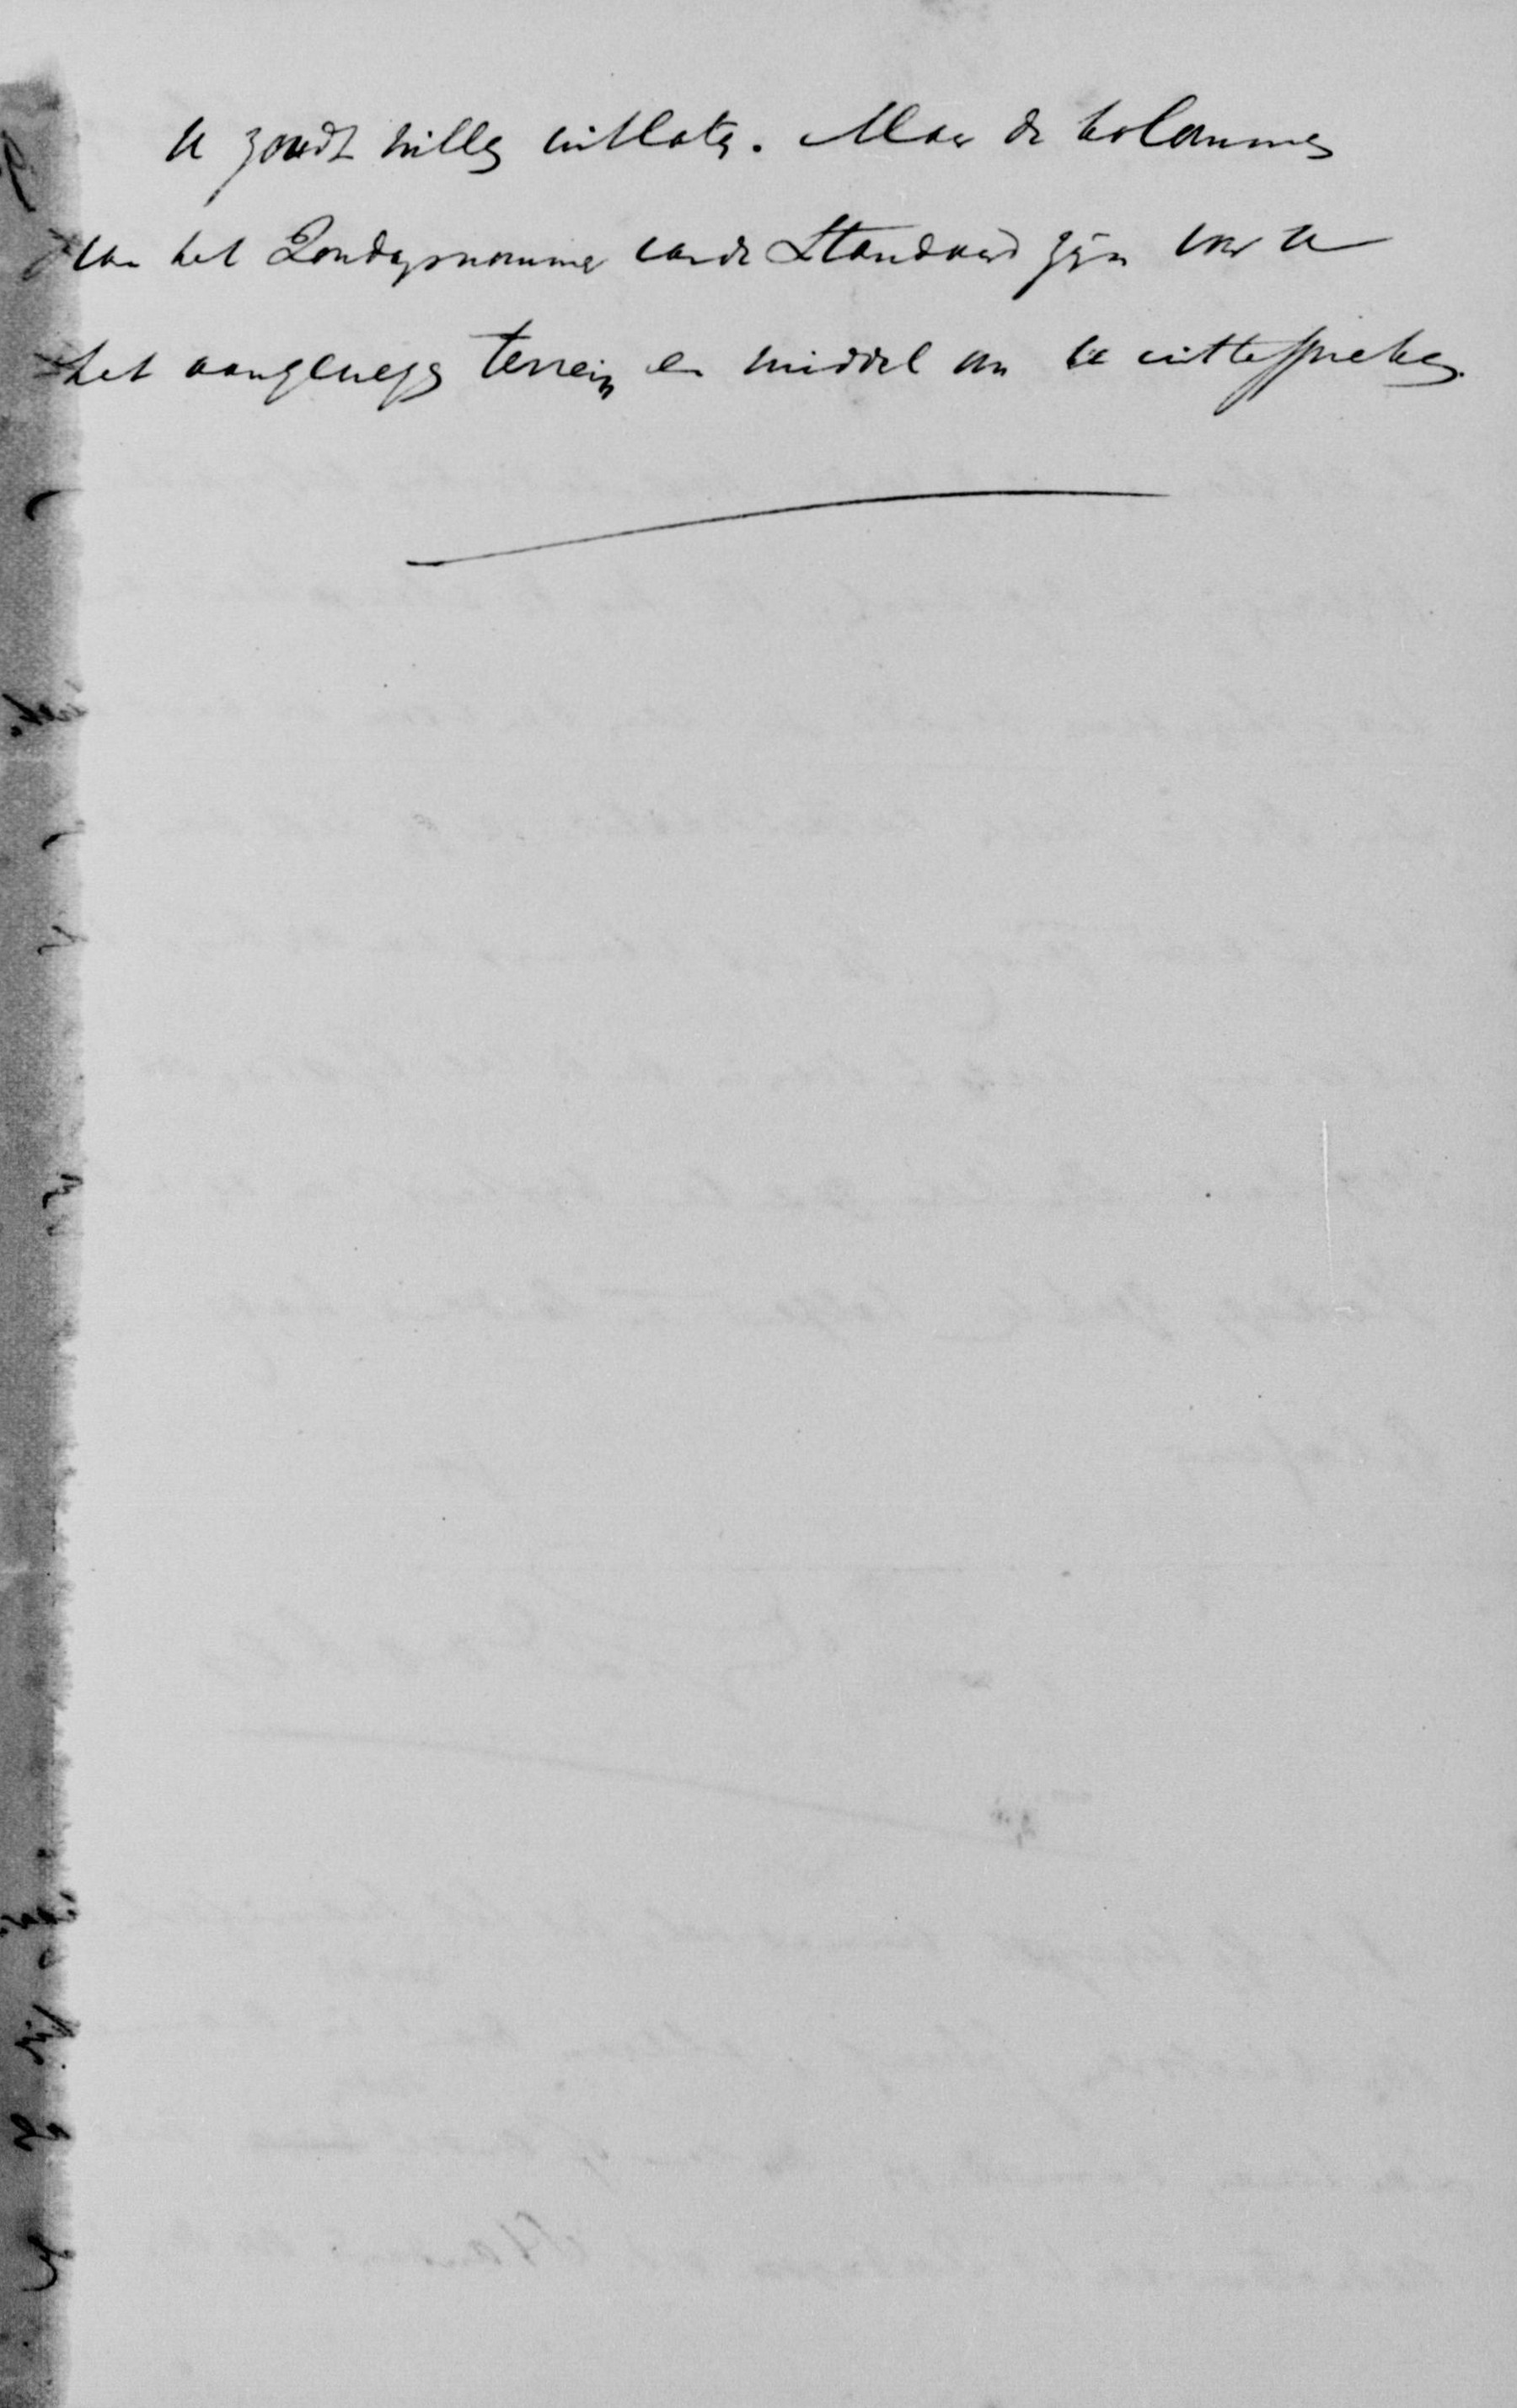 U zoudt willen uitlaten. Maar de kolommen
van het Zondagsnummer van de Standaard zijn voor U
het aangewezen terrein en middel om U uittespreken.